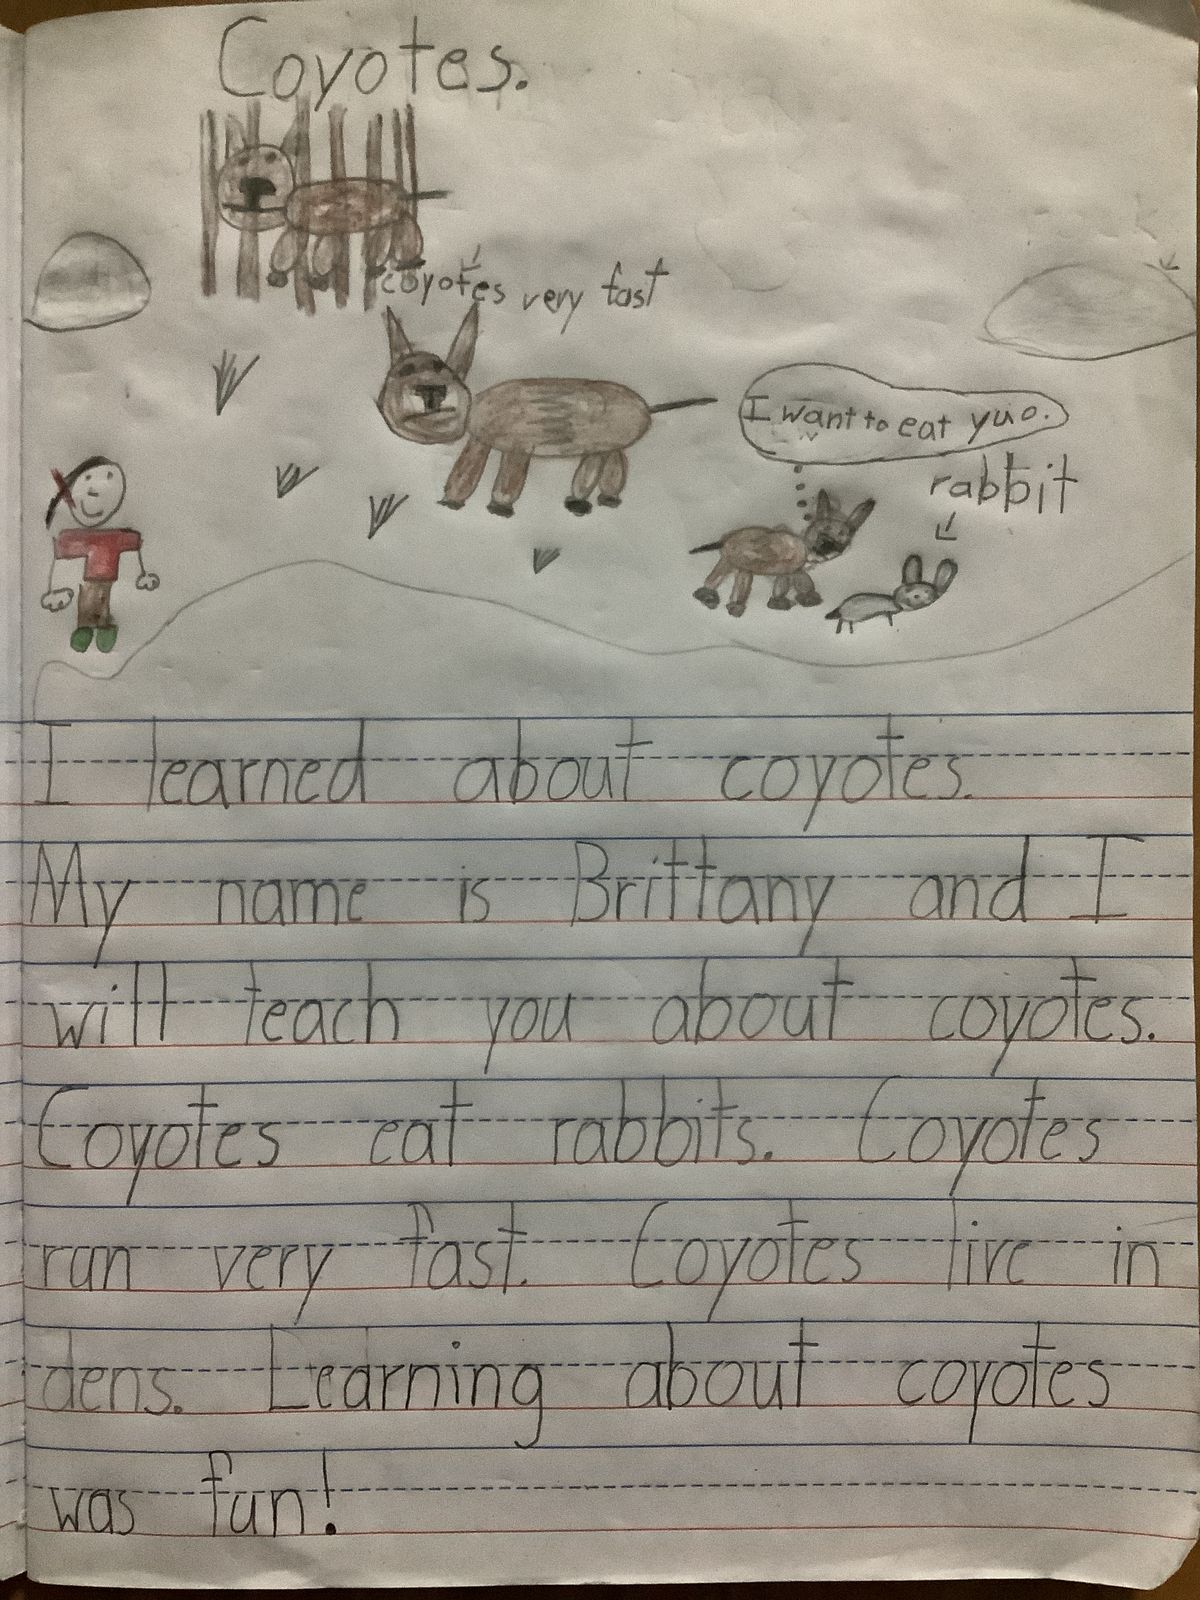 Coyotes.
coyotes very fast
I want to eat yuo.
rabbit
I learned about coyotes.
My name is Brittany and I
will teach you about coyotes.
Coyotes eat rabbits. Coyotes
run very fast. Coyotes live in
dens. Learning about coyotes
was fun!